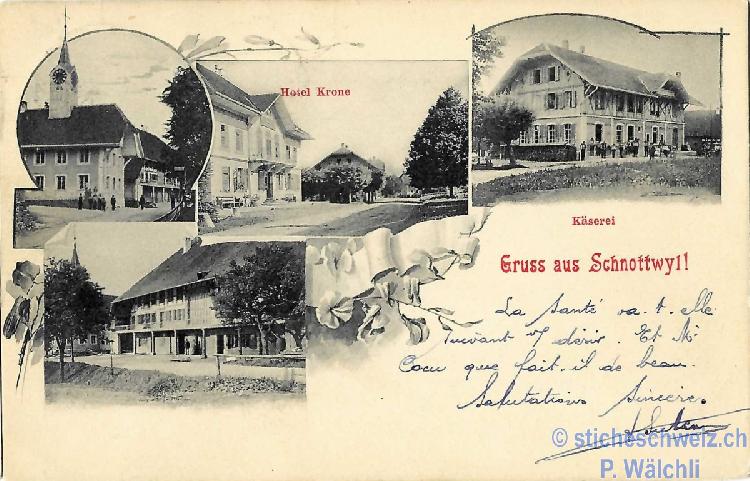 Hotel Krone
Käserei
Gruss aus Schnottwyl!
La Santé va-t-elle
suivant désir. Et Mr
Cocu que fait-il de beau.
Salutations Sincère.
© sticheschweiz.ch
P. Wälchli